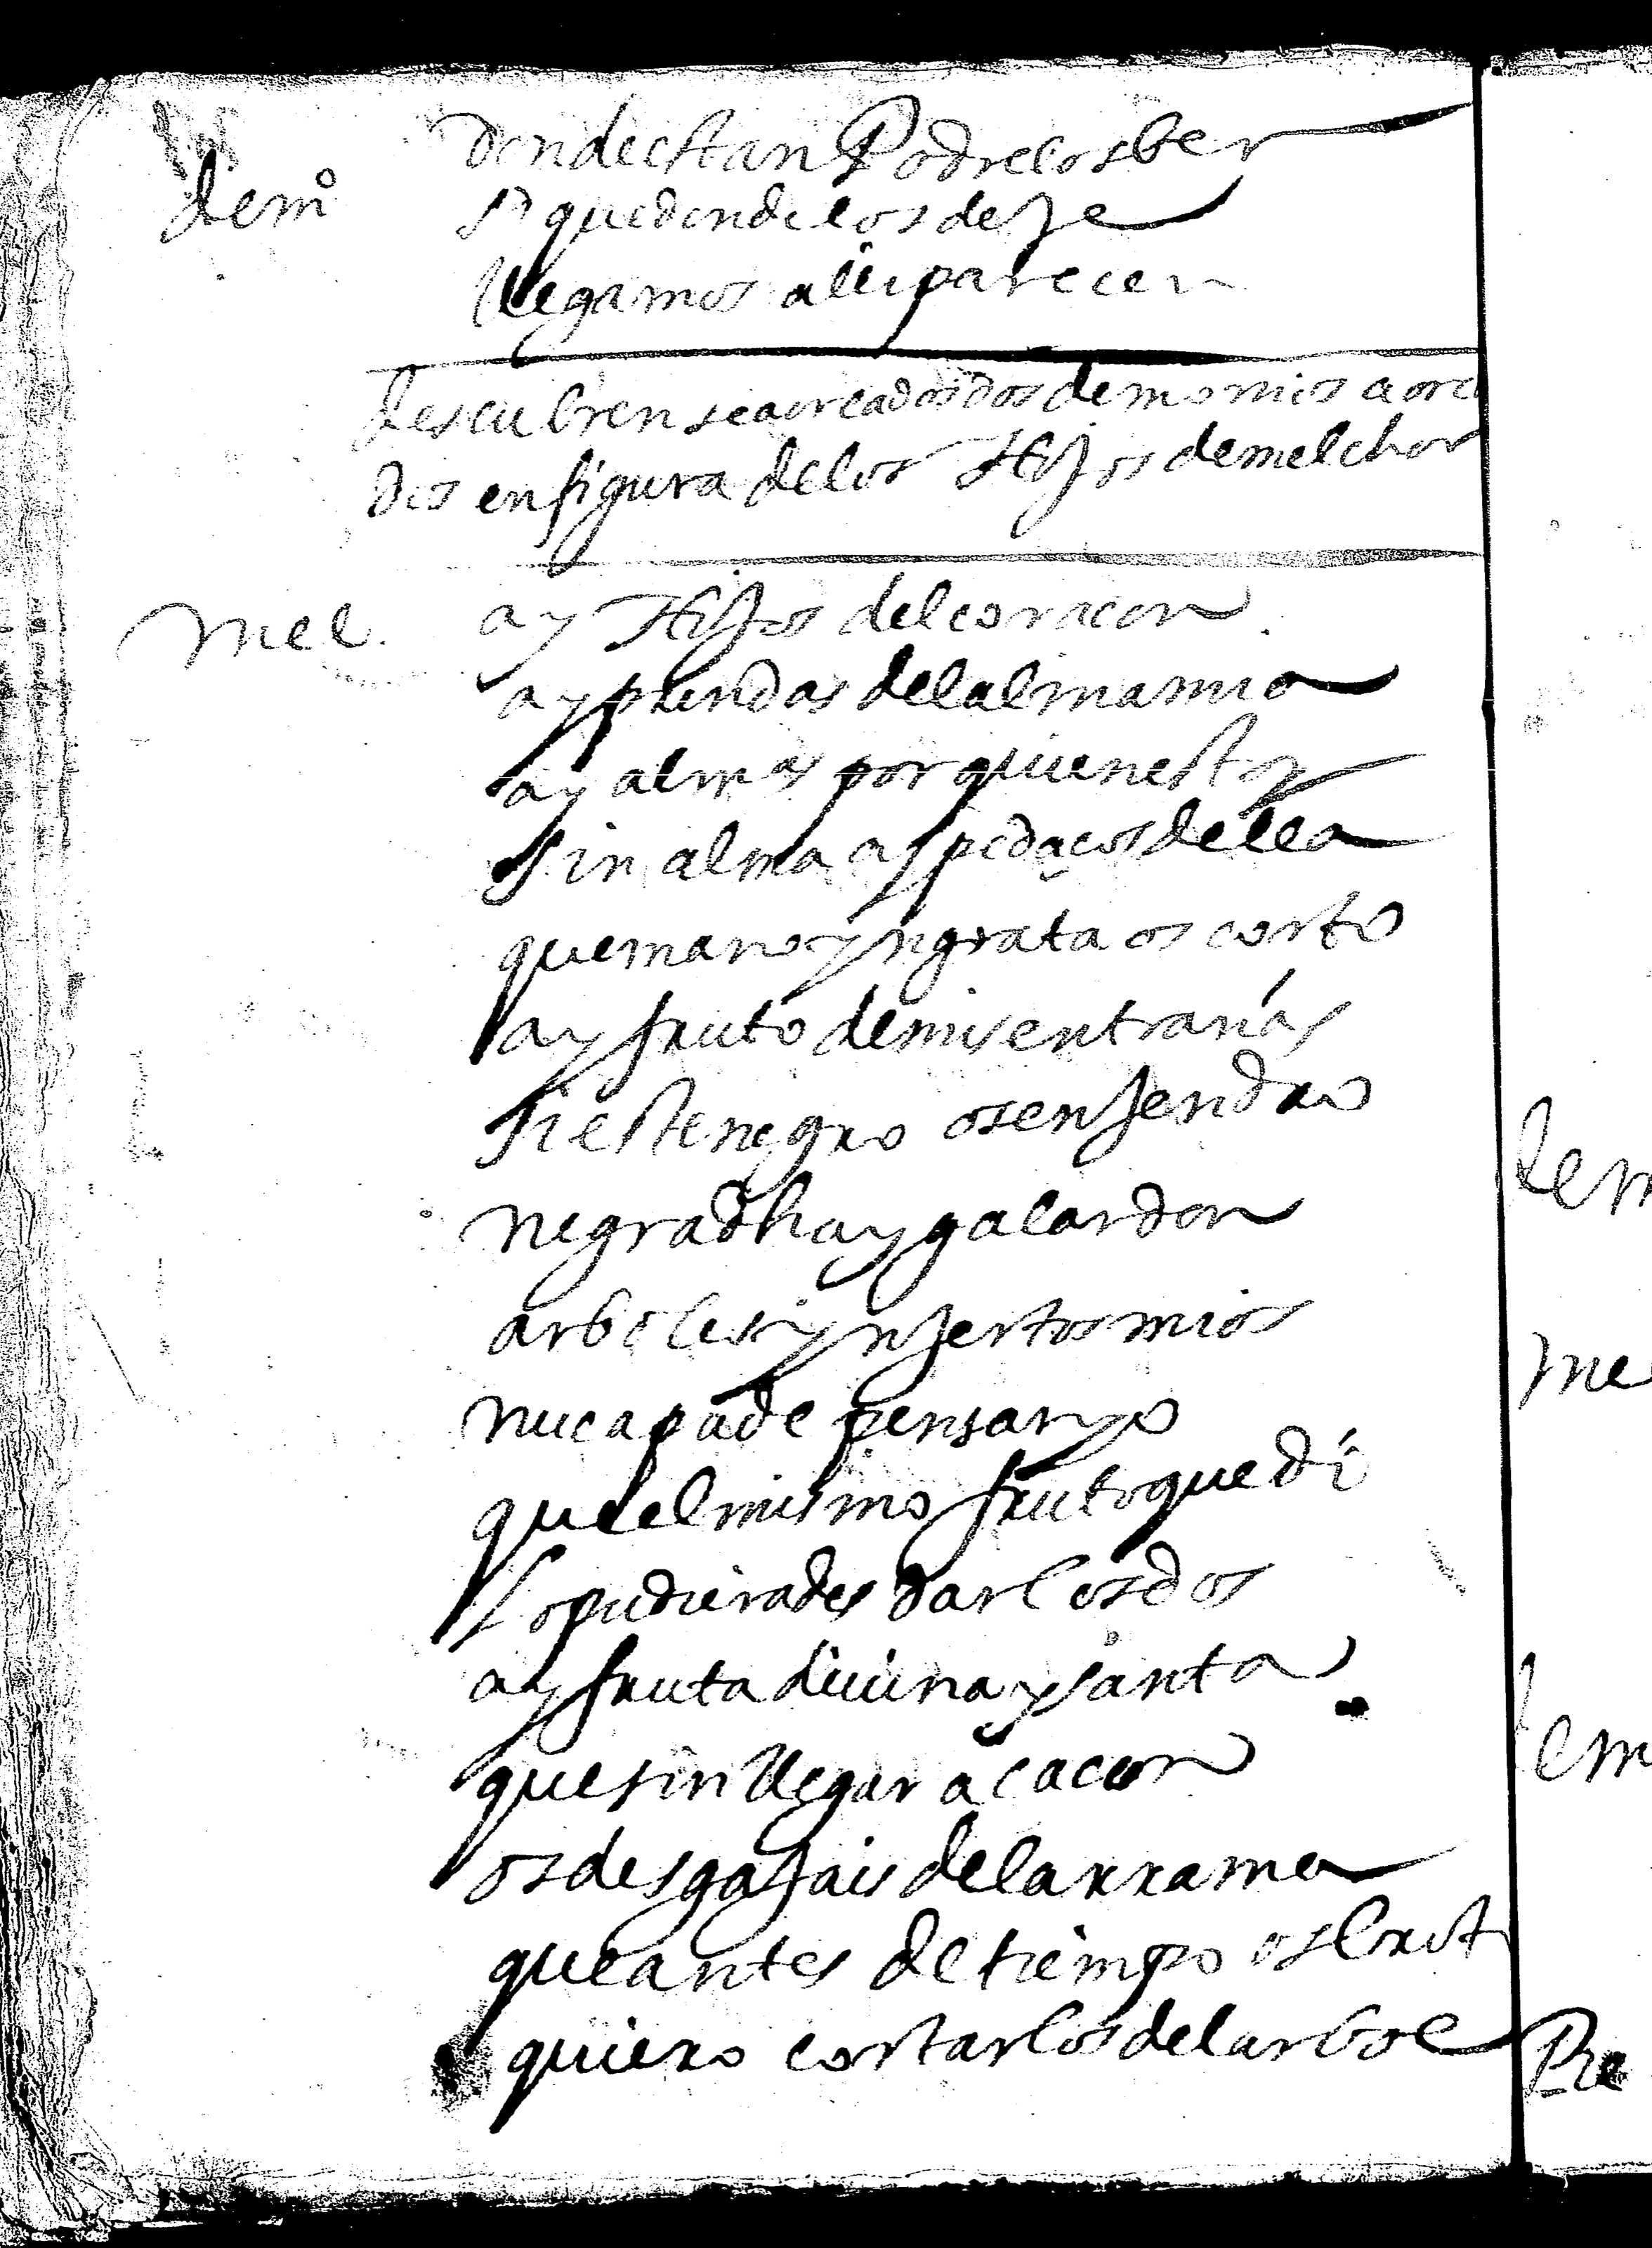 donde estan Podrelos ber
demº si que donde los deje
llegamos alli parecen
descubrense aorcados dos demonios aorca
dos en figura de los Hijos de melchor
mel. ay Hijos del coracon
ay prendas del alma mia
ay almas por quien estoy
sin alma ay pedaços della
que mano yngrata os corto
ay fruto de mis entrañas
si este negro os enjendro
negra dha y galardon
arboles ynjertos mios
nuca pude pensar yo
que el mismo fruto que di
lo pudierades dar los dos
ay fruta diuina y santa
que sin llegar a çacon
os desgajais de la rrama
que antes de tiempo os brot
quiero cortarlos del arbol
dem
me
dem
Pre